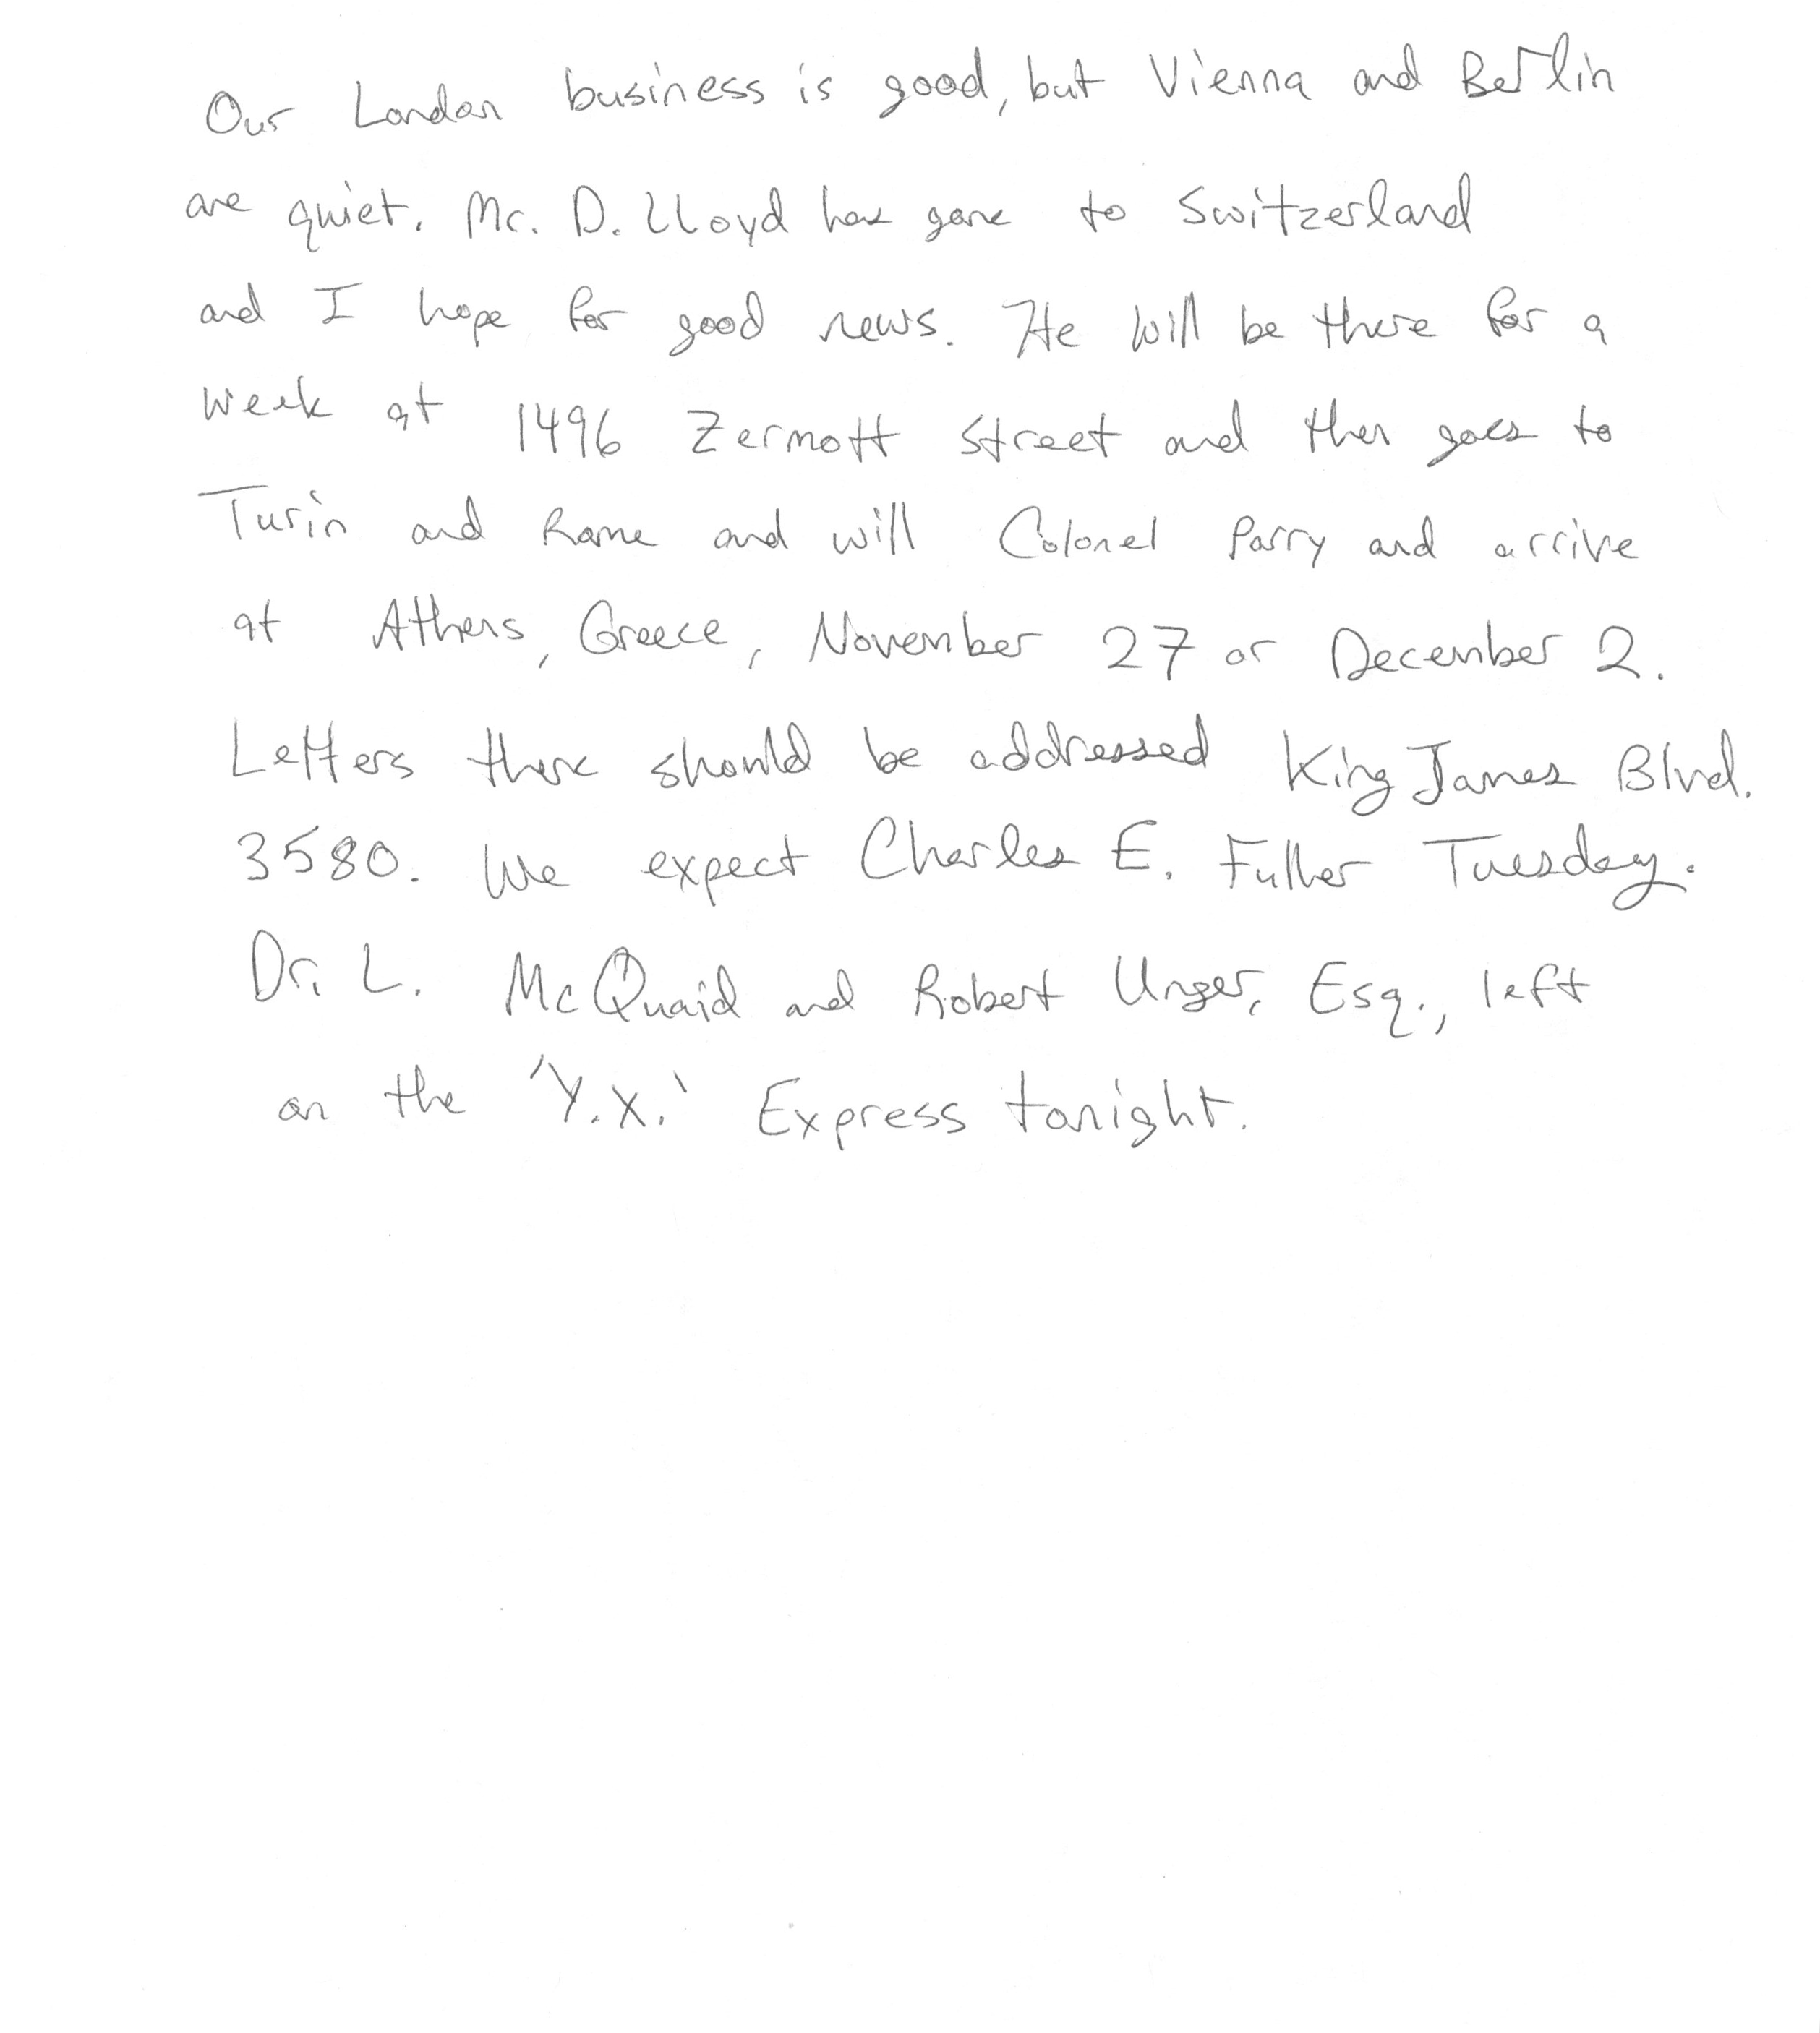 Our London business is good, but Vienna and Berlin
are quiet. Mr. D. Lloyd has gone to Switzerland
and I hope for good news. He will be there for a
week at 1496 Zermott Street and then goes to
Turin and Rome and will Colonel Parry and arrive
at Athens, Greece, November 27 or December 2.
Letters there should be addressed King James Blvd.
3580. We expect Charles E. Fuller Tuesday.
Dr. L. McQuaid and Robert Unger, Esq., left
on the 'Y.X.' Express tonight.